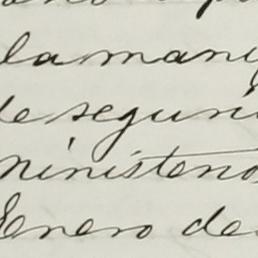 la man
de segun
ministerio
Enero de